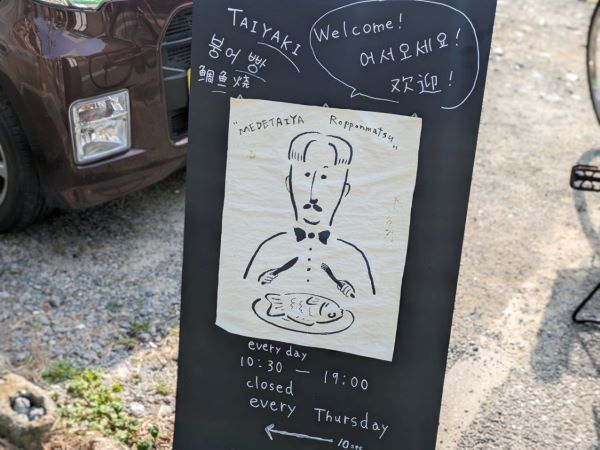 TAIYAKI
붕어 빵
鯛魚烧
Welcome!
어서오세요!
欢迎!
"MEDETAIYA Ropponmatsu"
every day
10:30 — 19:00
closed
every Thursday
←